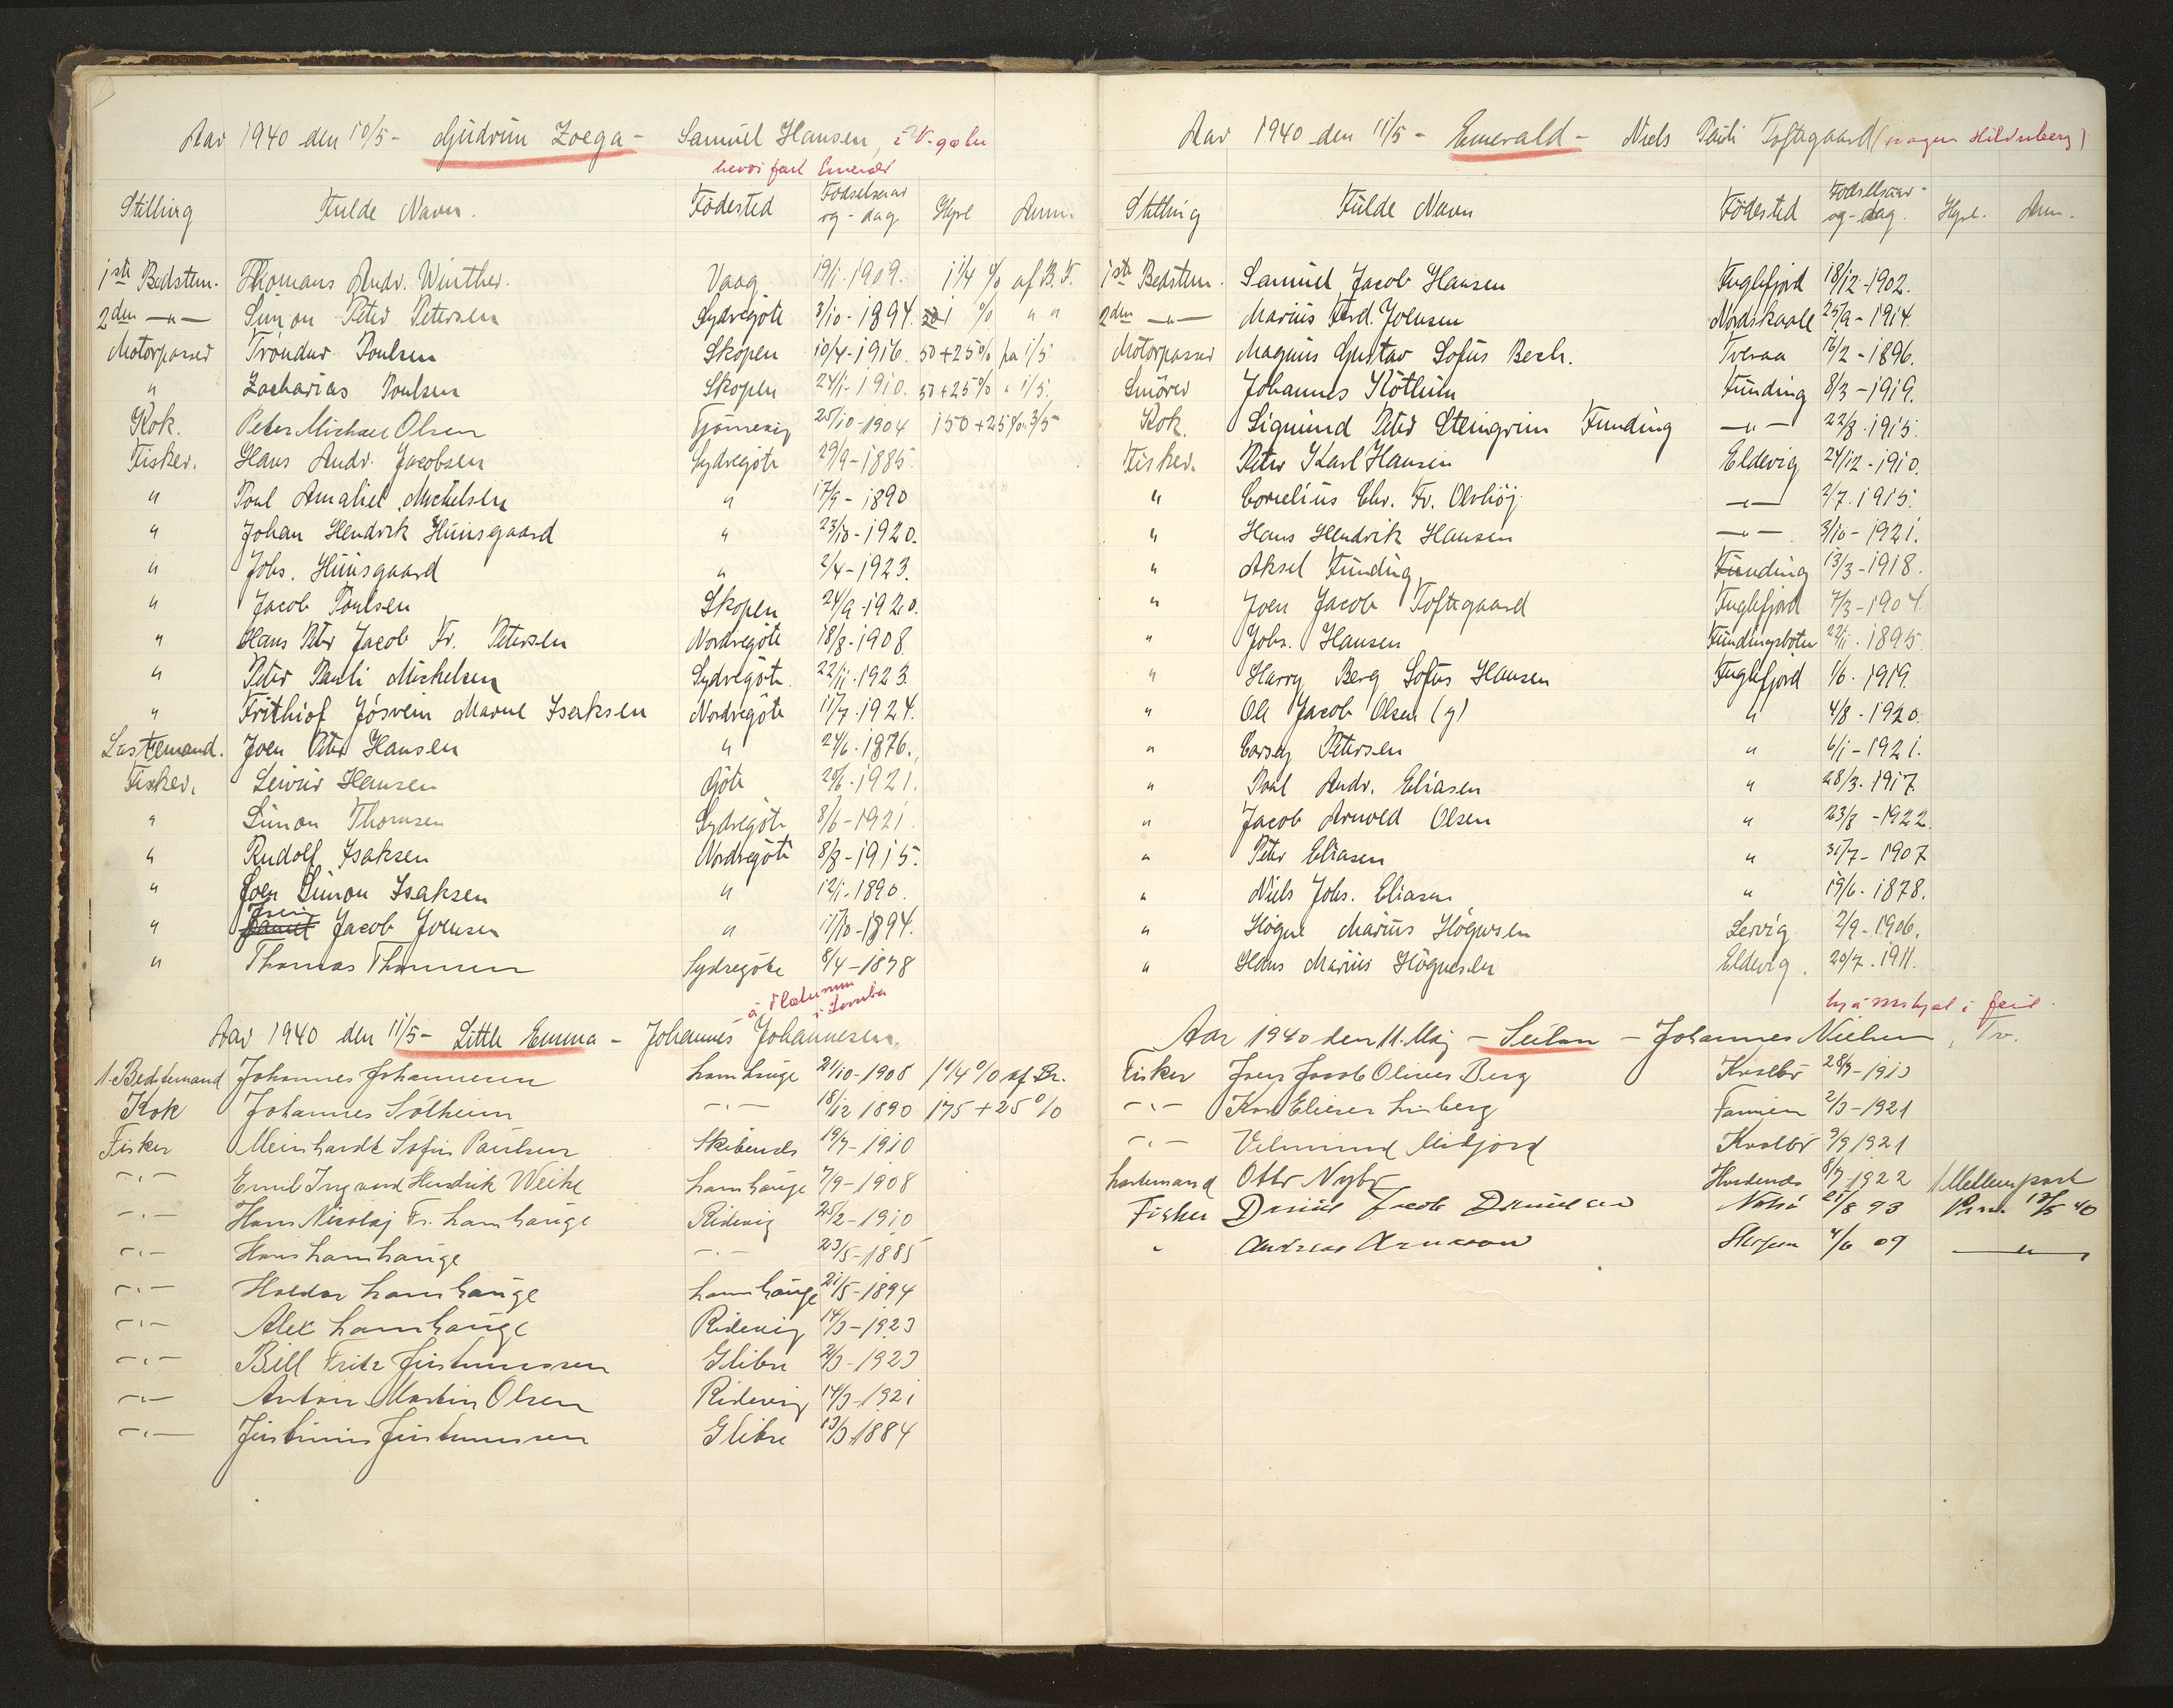 Aar 1940 den 10/5 - Gudrun Zoega - Samuel Hansen, i V-
Stilling Fulde Navn. Födested Födselsaar og - dag Hyre Anm.
1ste Bedstem. Thomans Andr. Winther. Vaag 19/1-1909. 1 1/4 % af B.F.
2den -"- Simon Peter Petersen Sydregöte 3/10-1894. 1 % " "
Motorpasser Tróndur Poulsen Skopen 10/4-1916. 50+25% fra 1/5
" Zacharias Poulsen Skopen 24/1-1910. 50+25% " 1/5.
Kok. Peter Michael Olsen Tjörnevig 25/10-1904 150+25% 3/5
Fisker. Hans Andr. Jacobsen Sydregöte 29/9-1885.
" Poul Amaliel Michelsen " 17/9-1890
" Johan Hendrik Huusgaard " 23/10-1920.
" Johs. Huusgaard " 2/4-1923.
" Jacob Poulsen Skopen 24/9-1920.
" Hans Petr Jacob Fr. Petersen Nordregöte 18/8-1908
" Peter Pauli Michelsen Sydregöte. 22/11-1923.
" Frithiof Jósvein Marne Isaksen Nordregöte 11/7-1924.
Lastemand. Joen Peter Hansen " 24/6-1876.
Fisker. Leivur Hansen Göte 20/6-1921.
" Simon Thomsen Sydregöte 8/6-1921
" Rudolf Isaksen Nordregöte 8/8-1915.
" Joen Simon Isaksen " 12/1-1890.
" Jacob Joensen " 11/10-1894.
" Thomas Thomsen Sydregöte 8/4-1878
Aar 1940 den 11/5 - Little Emma - Johannes Johannesen,
1. Bedstemand Johannes Johannesen Lamhauge 21/10-1908 1 1/4 % af Br.
Kok Johannes Sólheim -"- 18/12 1890 175+25%
Fisker Meinhardt Sofus Paulsen Skibenes 19/7-1910
-"- Emil Ingvard Hendrik Weihe Lamhauge 7/9-1908
-"- Hans Nicolaj Fr. Lamhauge Ridevig 25/2-1910
-"- Hans Lamhauge -"- 23/5-1885
-"- Haldor Lamhauge Lamhauge 21/5-1894
-"- Alex Lamhauge Ridevig 14/3-1923
-"- Bill Fritz Justinussen Glibre 2/3-1923
-"- Anton Martin Olsen Ridevig 14/3-1921
-"- Justinus Justinussen Glibre 13/3 1884
Aar 1940 den 11/5 - Emerald - Niels Pauli Toftegaard
Stilling Fulde Navn Födested Födselsaar- og - dag. Hyre. Anm.
1ste Bedstem. Samuel Jacob Hansen Fuglefjord 18/12-1902.
2den -"- Marius Ferd. Joensen Nordskaale 25/9-1914.
Motorpasser Magnus Gustav Sofus Bech. Tveraa 16/2-1896.
Smörer Johannes Kötlum Funding 8/3-1919.
Kok. Sigmund Peter Steingrim Funding -"- 22/8-1915.
Fisker. Peter Karl Hansen Eldevig 24/12-1910.
" Cornelius Chr. Fr. Olvhöj -"- 2/7.1915.
" Hans Hendrik Hansen -"- 3/10-1921.
" Aksel Funding Funding 13/3-1918.
" Joen Jacob Toftegaard Fuglefjord 7/3-1904.
" Johs. Hansen Fundingsbotn 22/11-1895.
" Harry Berg Sofus Hansen Fuglefjord 1/6-1919.
" Ole Jacob Olsen (y) " 4/8-1920.
" Carsey Petersen " 6/1-1921.
" Poul Andr. Eliasen " 28/3-1917
" Jacob Arnold Olsen " 23/8-1922.
" Peter Eliasen " 31/7-1907
" Niels Johs. Eliasen " 19/6-1878.
" Högne Marius Högnesen Lervig 2/9-1906.
" Hans Marius Högnesen Eldevig. 20/7.1911.
Aar 1940 den 11. Maj - Sulan - Johannes Nielsen, Tv.
Fisker Joen Jacob Oliver Berg Kvalbö 28/9-1910
-"- Elieser Famien 2/3-1921
-"- Vilmund Midjord Kvalbö 9/9 1921
Lastemand Otto Nybo 8/7 1922 1 Mellempart
Fisker Daniel Jacob Danielsen 21/8 93 12/5 40
" Andreas Skopun 4/6 09 -"-